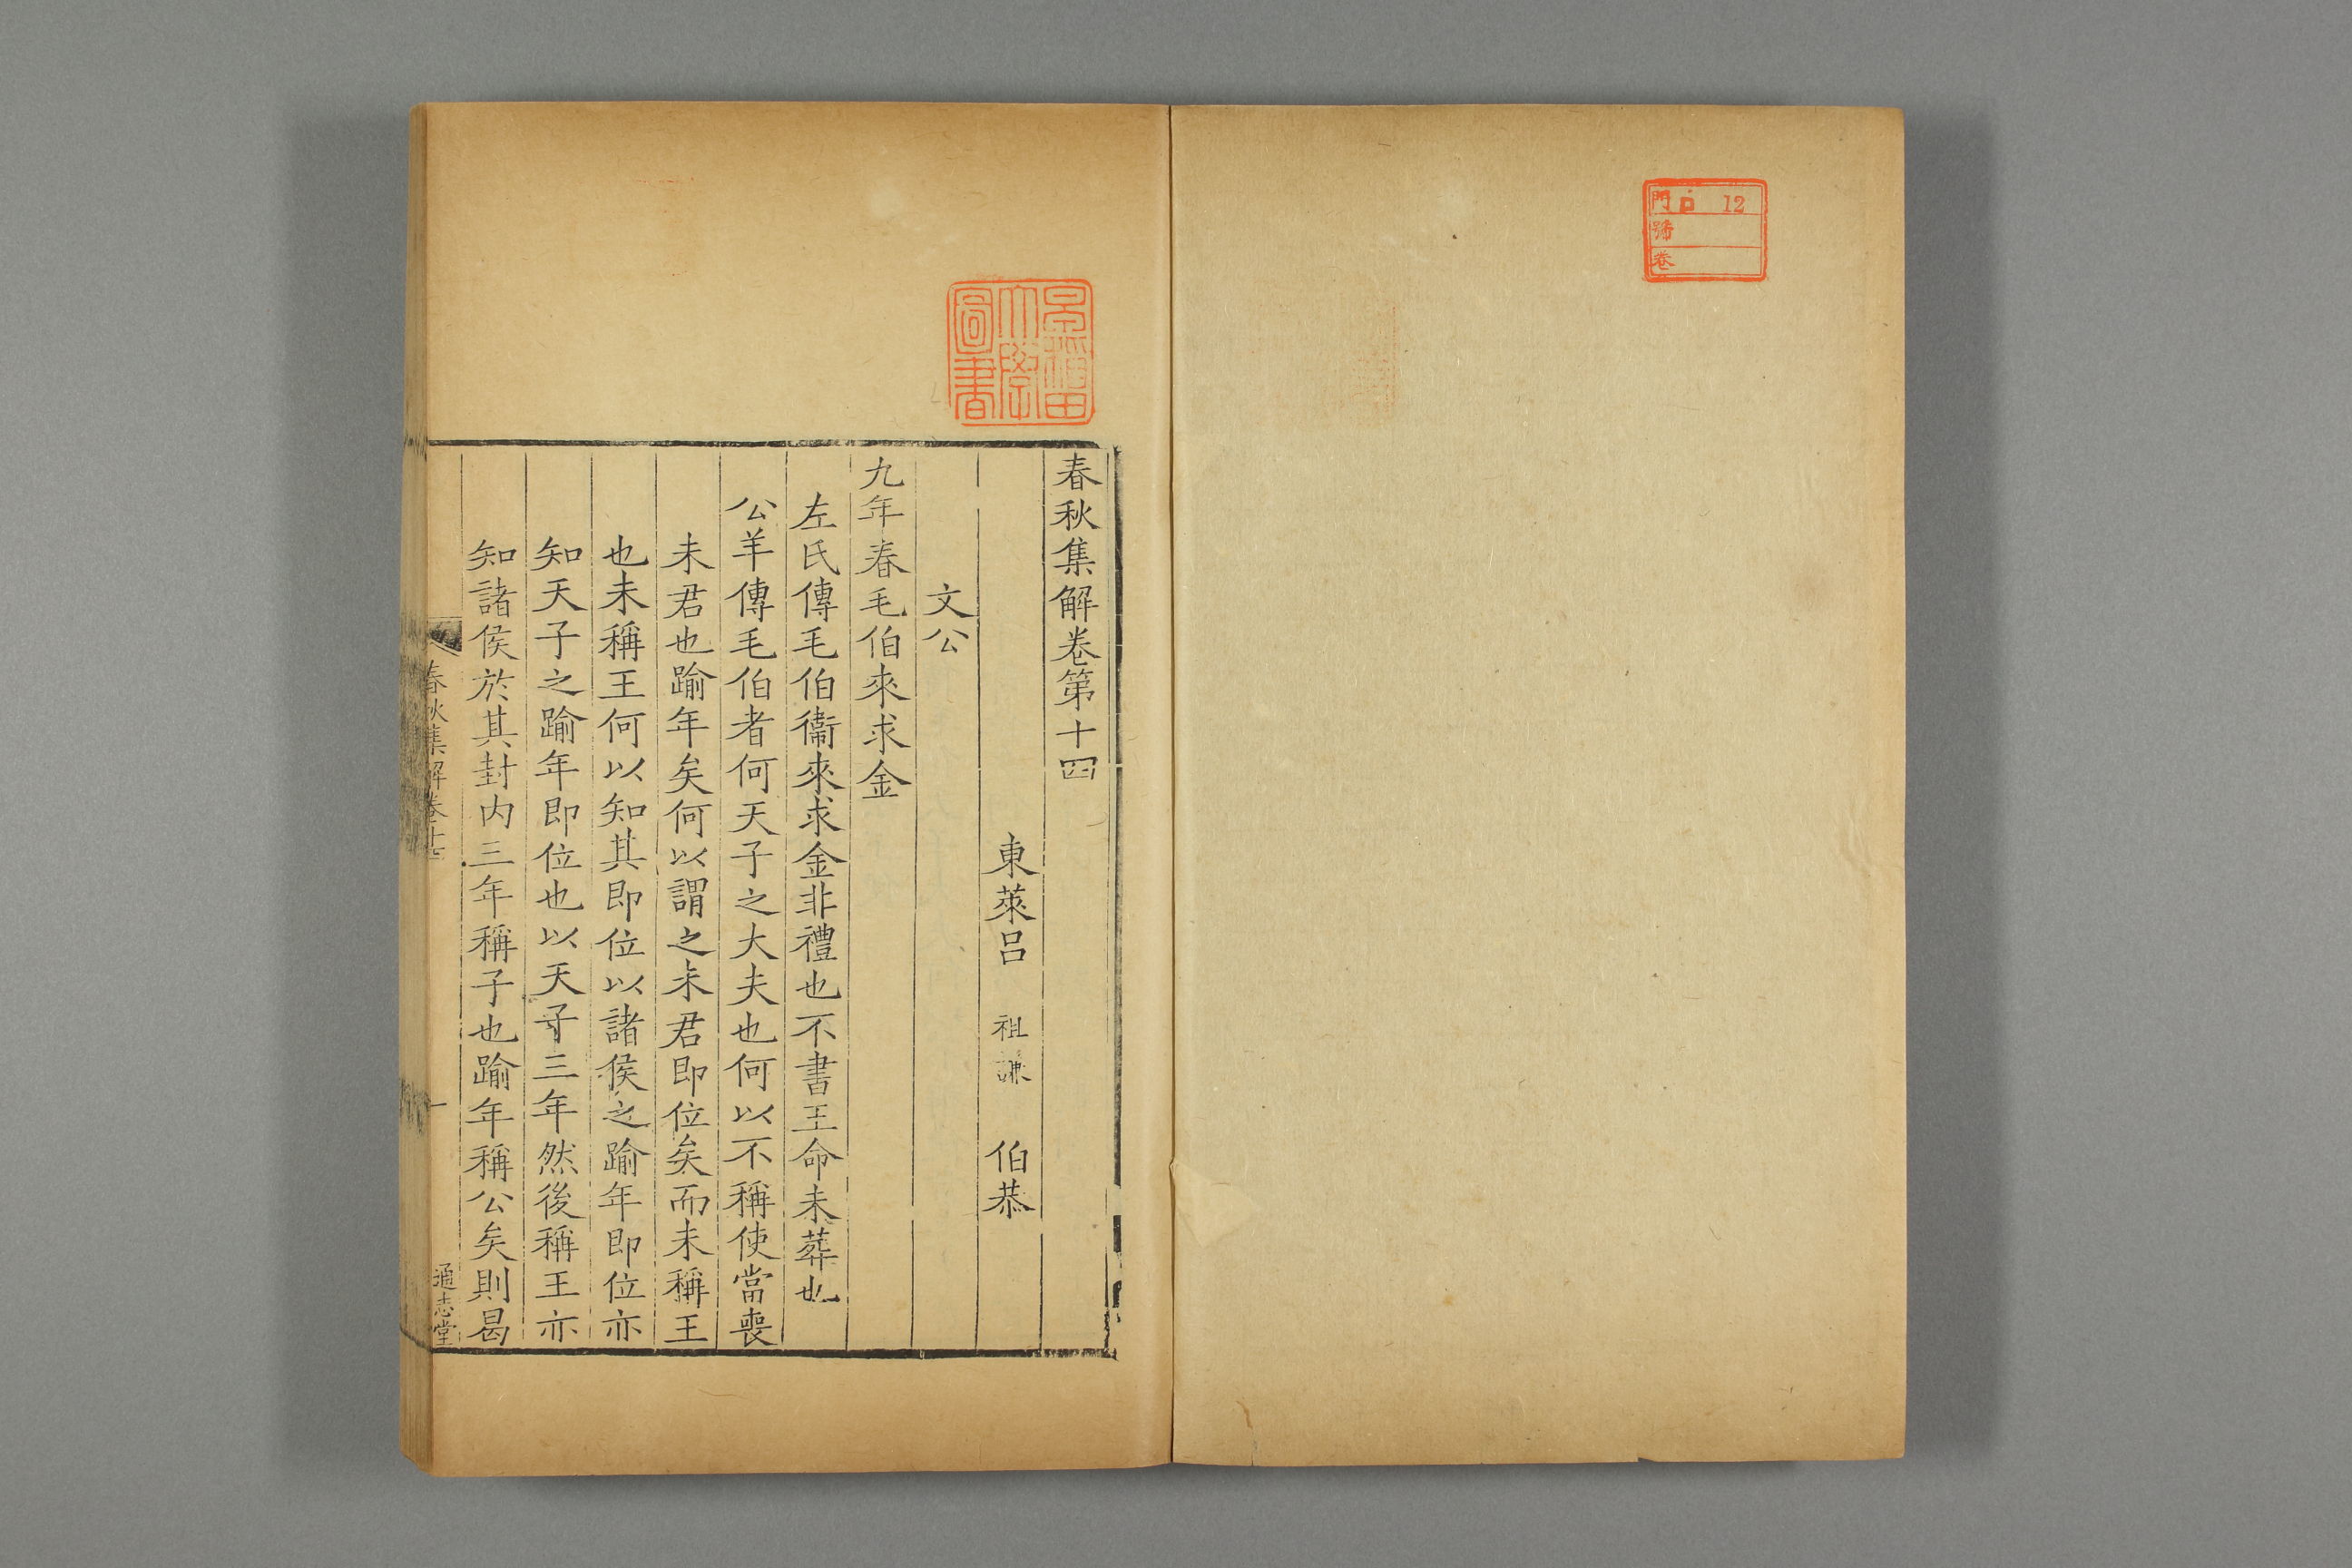 門 ロ 12
號
卷
早稻田大學圖書
春秋集解卷第十四
東萊呂 祖謙 伯恭
文公
九年春毛伯來求金
左氏傳毛伯衞來求金非禮也不書王命未葬也
公羊傳毛伯者何天子之大夫也何以不稱使當喪
未君也踰年矣何以謂之未君即位矣而未稱王
也未稱王何以知其即位以諸侯之踰年即位亦
知天子之踰年即位也以天子三年然後稱王亦
知諸侯於其封内三年稱子也踰年稱公矣則曷
春秋集解卷十四
一
通志堂